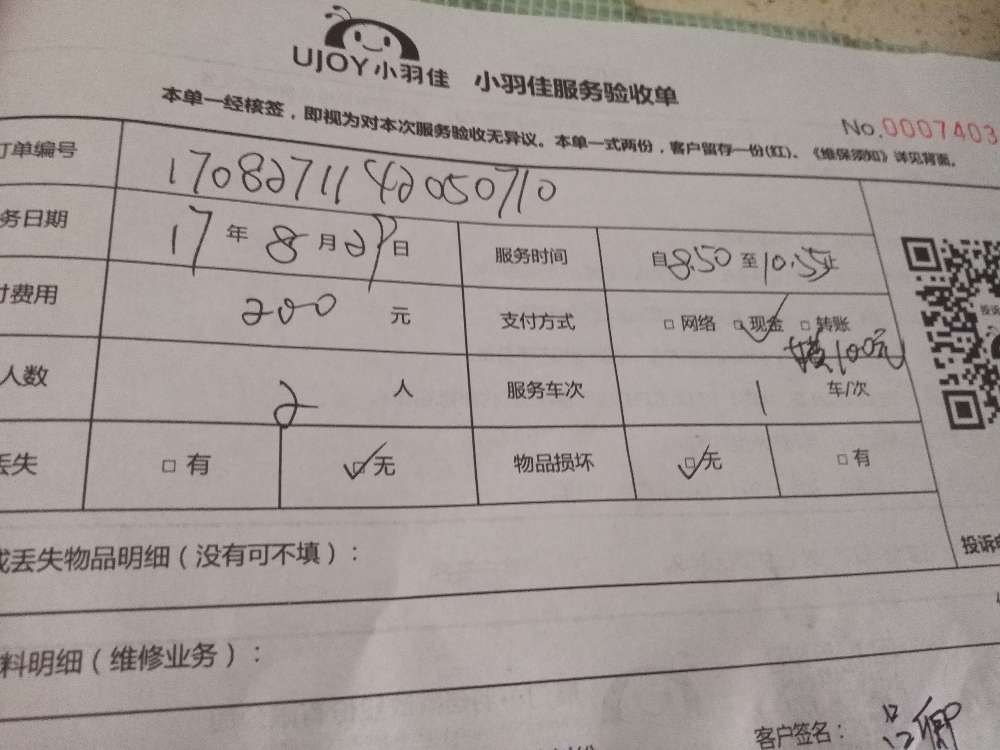 UJOY小羽佳 小羽佳服务验收单
本单一经核签，即视为对本次服务验收无异议。本单一式两份，客户留存一份(红)、《维保须知》详见背面。
No.0007403
订单编号 1708271142050710
务日期 17年8月27日 服务时间 自8.50至10.55止
付费用 200元 支付方式 □网络 □现金 □转账
100元
人数 2人 服务车次 1车/次
丢失 □有 □无 物品损坏 □无 □有
投诉
或丢失物品明细（没有可不填）：
投诉电
料明细（维修业务）：
客户签名：